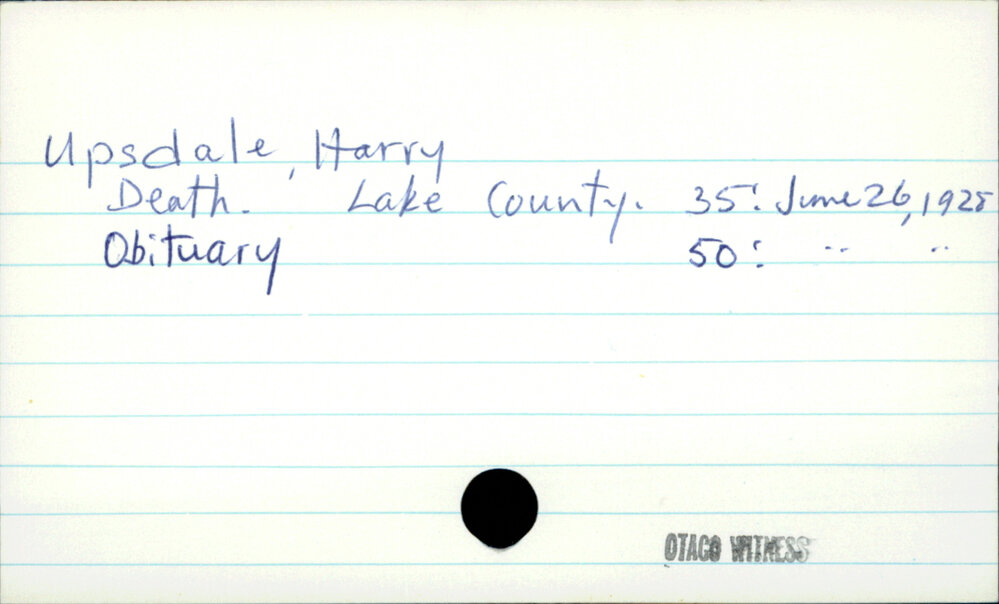 Upsdale, Harry
Death. Lake County. 35: June 26, 1928
Obituary 50: " "
OTAGO WITNESS